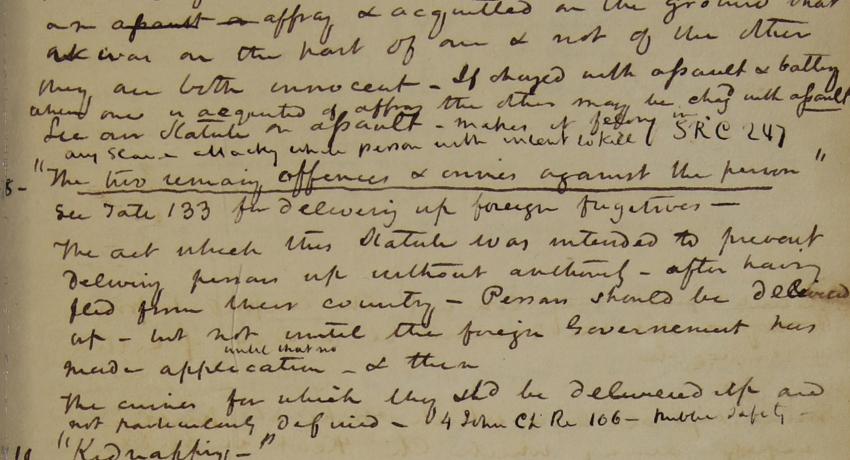 an assault or affray & acquitted on the ground that
it was on the part of one & not of the other
they are both innocent - If charged with assault & battery
when one is acquitted of affray the other may be chgd with assault
See our Statute on assault - makes it felony in
any slave attackg white person with intent to kill ( 5 R C 247
"The two remaing offences & crimes against the person"
See Tate 133 for delivering up foreign fugitives -
The act which this Statute was intended to prevent
Delivering persons up without authority - after having
fled from their country - Persons should be delivered
up - but not until the foreign Governement has
until that no
made application - & then
The crimes for which they shd be delivered up are
not particularly defined - 4 John Ch Re 106 - Public Safety -
"Kidnapping -"